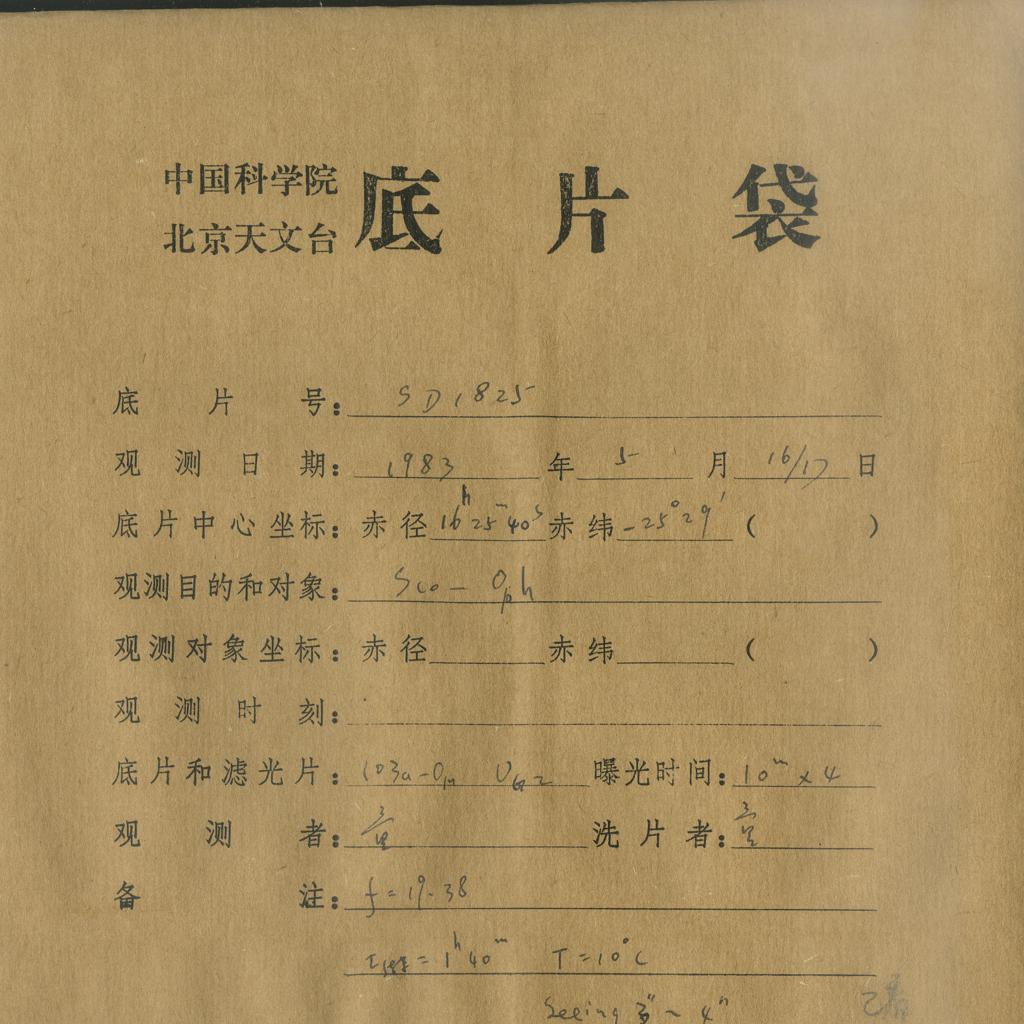 中国科学院
北京天文台 底片袋
底片号： SD1825
观测日期： 1983 年 5 月 16/17 日
底片中心坐标：赤径 16h 25m 40s 赤纬 -25° 29′ （ ）
观测目的和对象： Sco - Oph
观测对象坐标：赤径 赤纬 （ ）
观测时刻：
底片和滤光片： 103a-O UG2 曝光时间： 10m x 4
观测者： 洗片者：
备注： f=19.38
= 1h 40m T=10°C
Seeing 3" ~ 4"